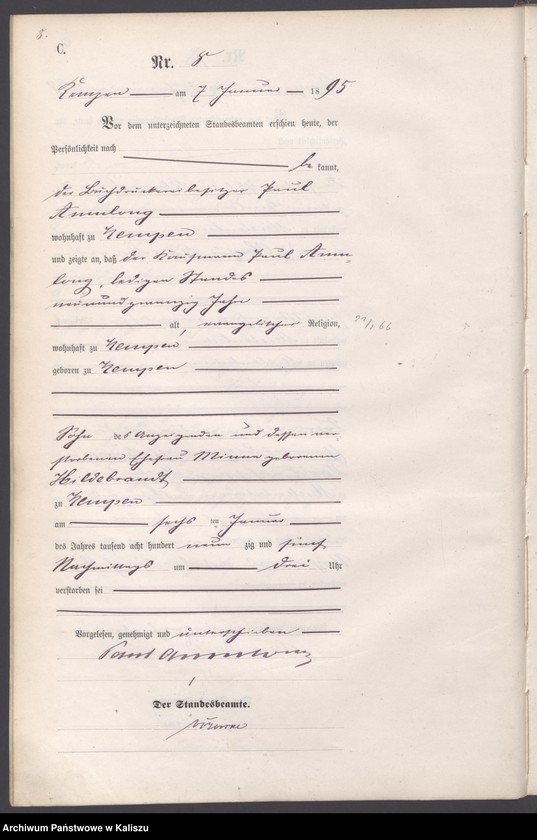 8.
C.
Nr. 8
Kempen am 7 Januar 1895
Vor dem unterzeichneten Standesbeamten erschien heute, der
Persönlichkeit nach
be kannt,
der Buchdruckereibesitzer Paul
wohnhaft zu Kempen
und zeigte an, daß der Kaufmann Paul
ledigen Standes
neunundzwanzig Jahr
alt, evangelischer Religion,
wohnhaft zu Kempen
geboren zu Kempen
Sohn des Anzeigenden und dessen ver-
storbenen Ehefrau Minna geborenen
Hildebrandt
zu Kempen
am sechs ten Januar
des Jahres tausend acht hundert neun zig und fünf
Nachmittags um drei Uhr
verstorben sei
Vorgelesen, genehmigt und unterschrieben
Paul
Der Standesbeamte.
Archiwum Państwowe w Kaliszu